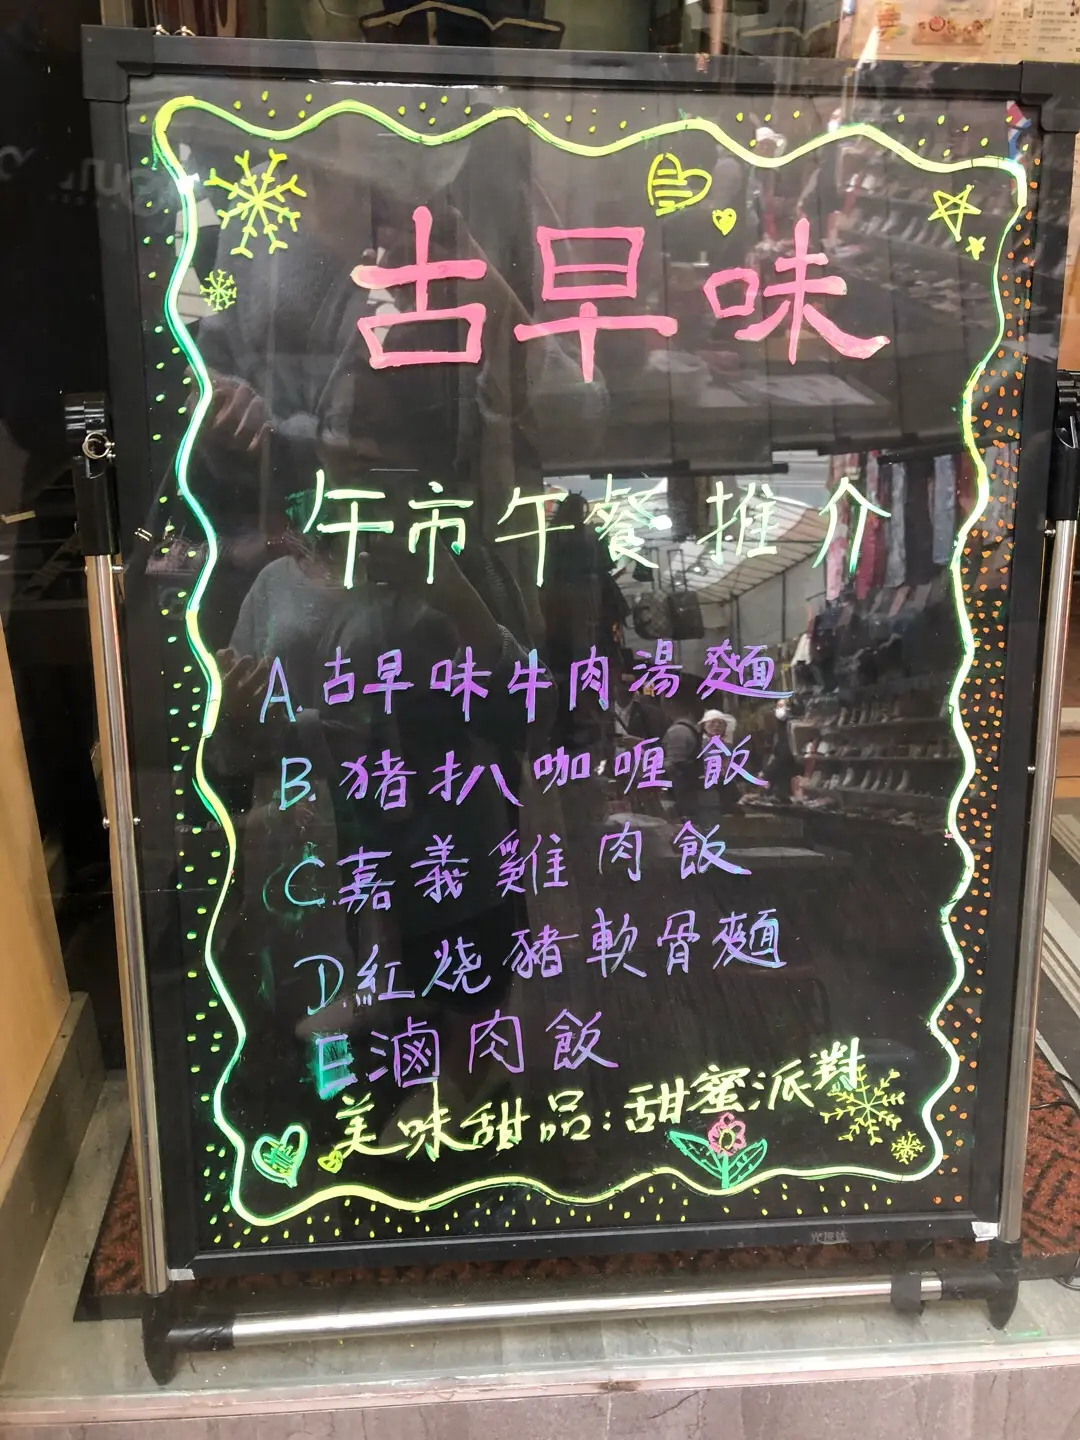 古早味
午市午餐推介
A.古早味牛肉湯麵
B.猪扒咖喱飯
C.嘉義雞肉飯
D.紅燒豬軟骨麵
E滷肉飯
美味甜品:甜蜜派對